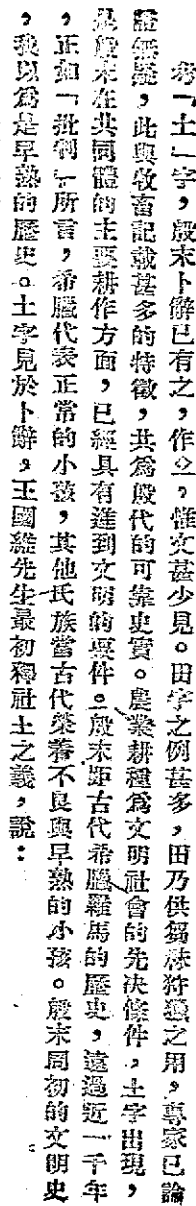 考「土」字，殷末卜辭已有之，作𡈽，惟文甚少見。田字之例甚多，田乃供芻秣狩獵之用，專家已論
證無疑，此與牧畜記載甚多的特徵，共爲殷代的可靠史實。農業耕種爲文明社會的先決條件，土字出現，
是殷末在共同體的主要耕作方面，已經具有達到文明的要件。殷末距古代希臘羅馬的歷史，遠過近一千年
，正如「批判」所言，希臘代表正常的小孩，其他氏族當古代榮養不良與早熟的小孩。殷末周初的文明史
，我以爲是早熟的歷史。土字見於卜辭，王國維先生最初釋社土之義，說：